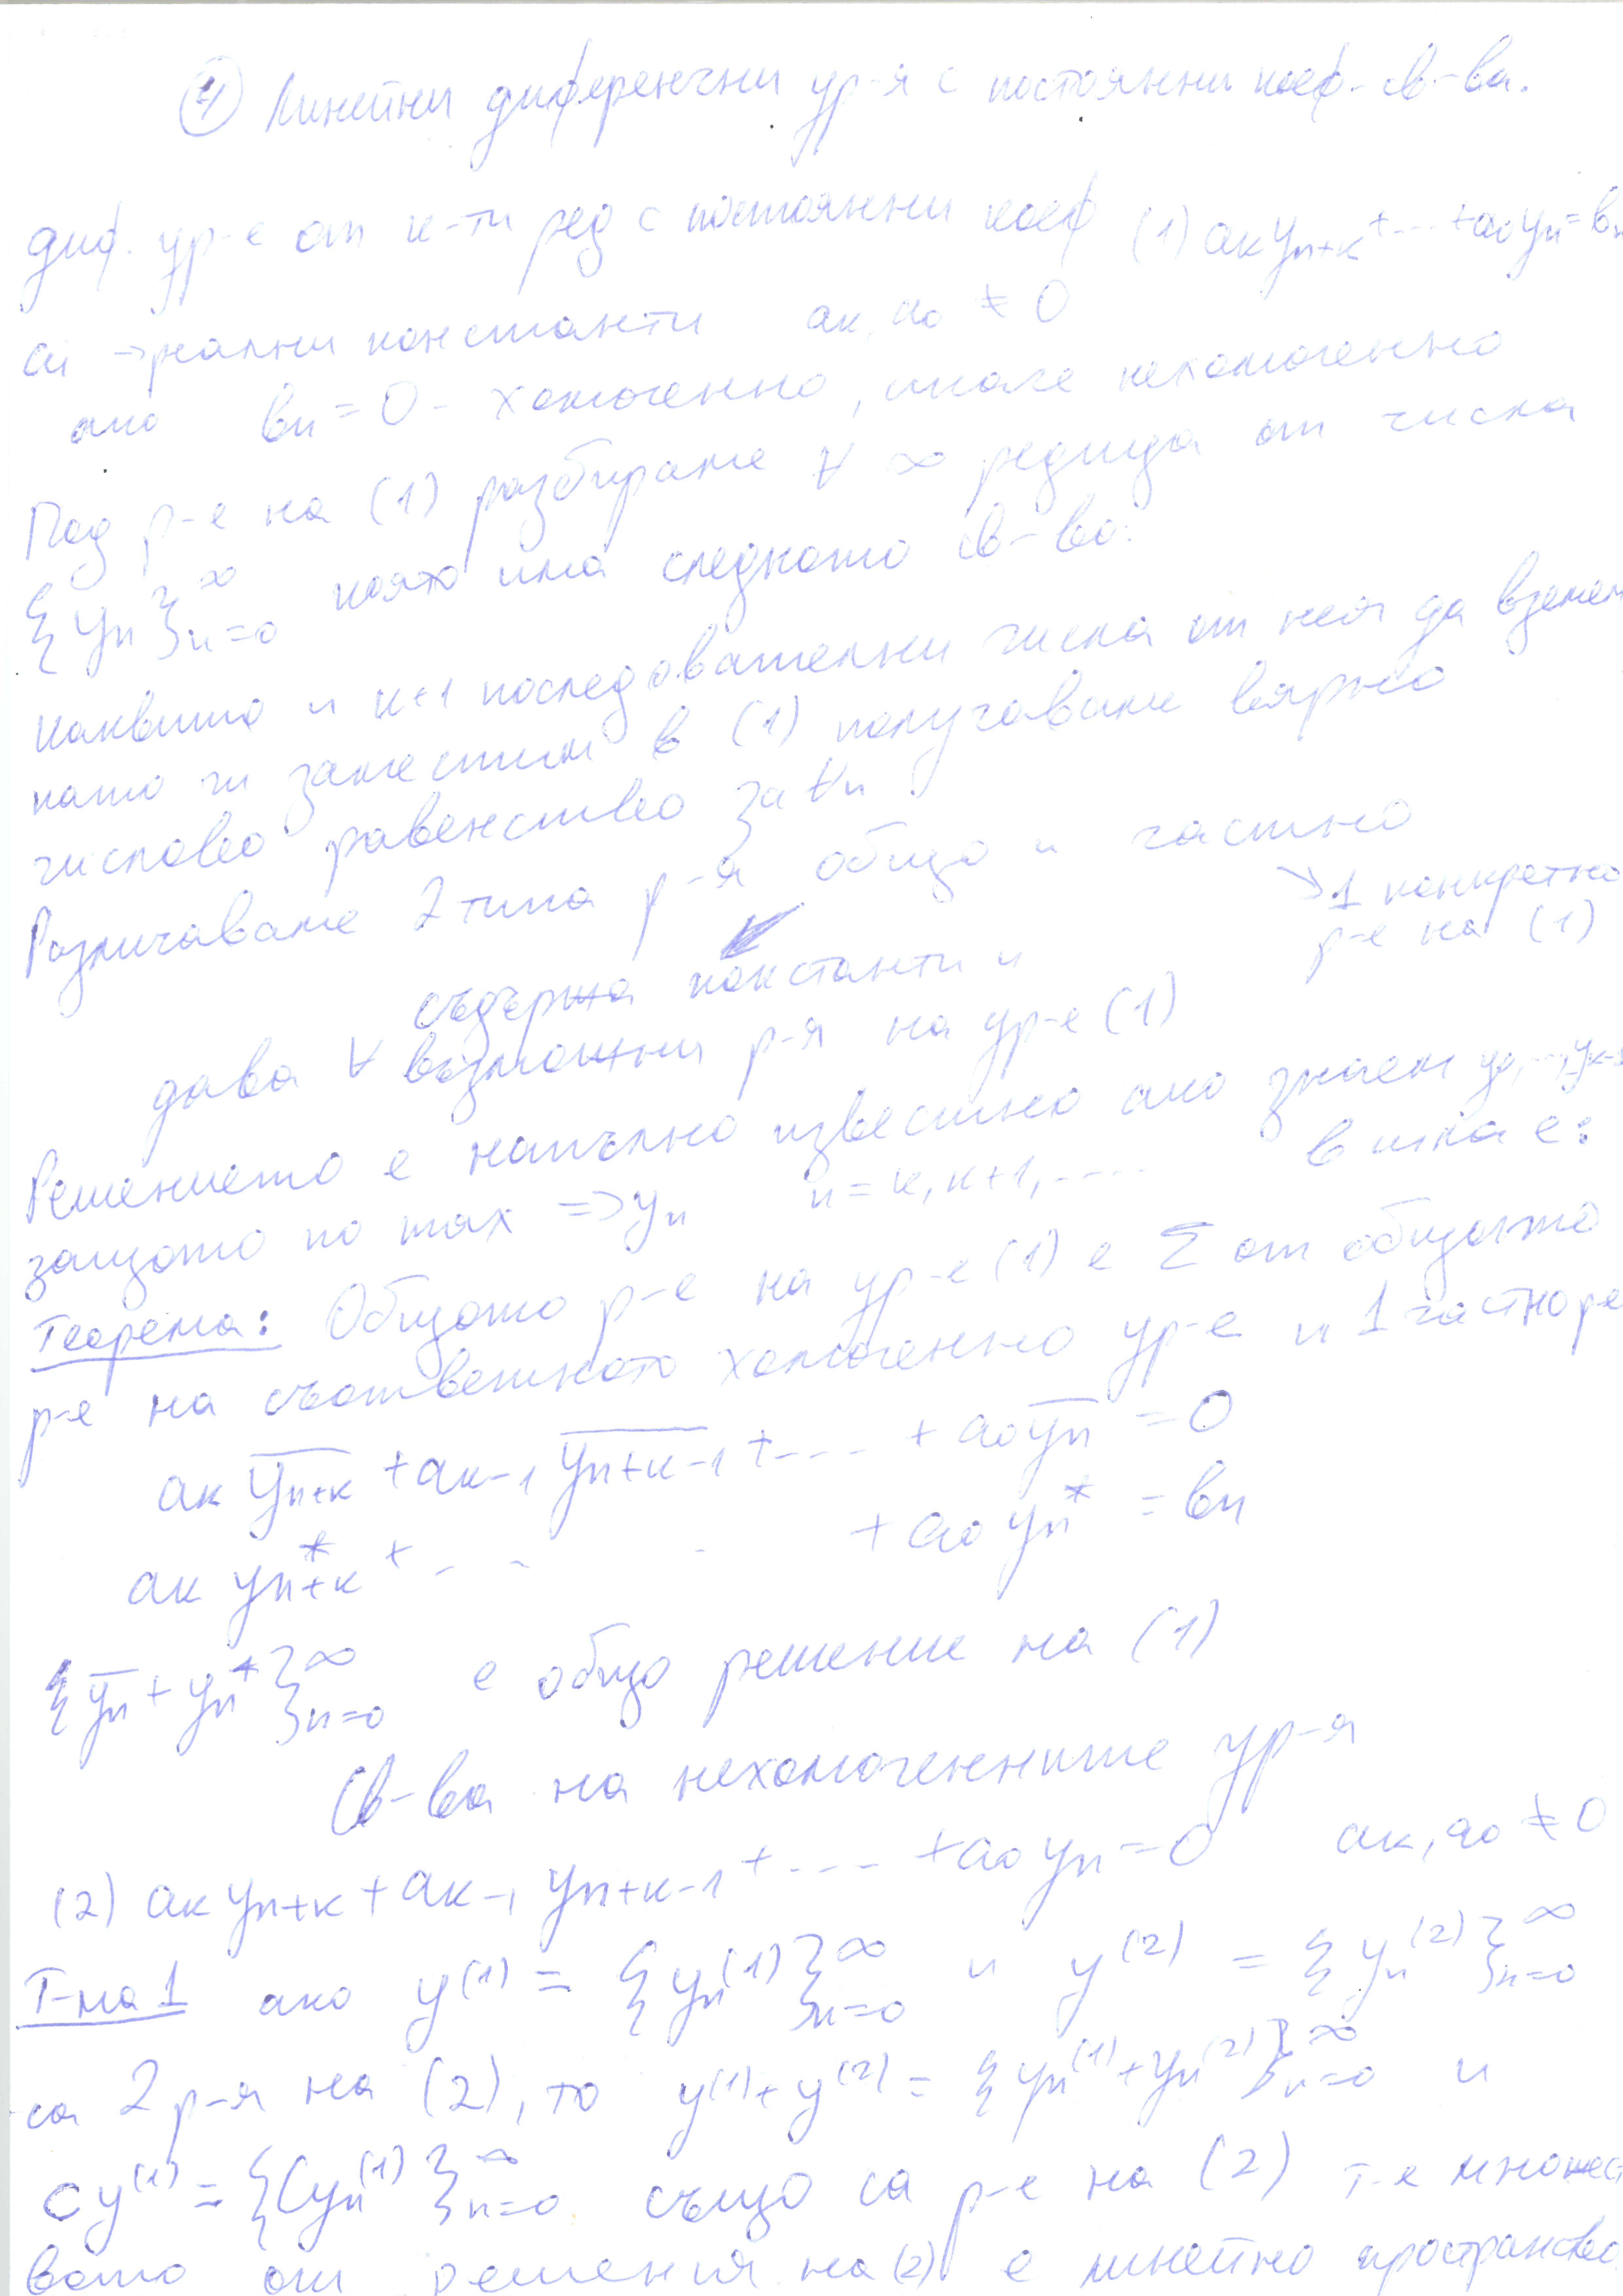 ④ Линейни диференчни ур-я с постоянни коеф. св-ва.
диф. ур-е от к-ти ред с постоянни коеф (1) aк yn+к + ... + a0 yn = bn
ai → реални константи aк, a0 ≠ 0
ако bn = 0 - хомогенно, иначе нехомогенно
Под р-е на (1) разбираме ∀ ∞ редица от числа
{yn}∞n=0 която има следното св-во:
каквито и к+1 последователни числа от нея да вземем
като ги заместим в (1) получаваме вярно
числово равенство за ∀n
Различаваме 2 типа р-я общо и частно
→ 1 конкретно
р-е на (1)
съдържа константи и
дава ∀ възможни р-я на ур-е (1)
Решението е напълно известно ако знаем y0,...,yк-1
защото по тях => yn n = к, к+1, .... в има е:
Теорема: Общото р-е на ур-е (1) е Σ от общото
р-е на съответното хомогенно ур-е и 1 частно р-е
aк y̅n+к + aк-1 y̅n+к-1 + .... + a0 y̅n = 0
aк y*n+к + - - - + a0 yn* = bn
{y̅n + yn*}∞n=0 е общо решение на (1)
Св-ва на нехомогенните ур-я
(2) aк yn+к + aк-1 yn+к-1 + .... + a0 yn = 0 aк, a0 ≠ 0
Т-ма 1 ако y(1) = {yn(1)}∞n=0 и y(2) = {yn(2)}∞n=0
са 2 р-я на (2), то y(1) + y(2) = {yn(1) + yn(2)}∞n=0 и
Cy(1) = {Cyn(1)}∞n=0 също са р-е на (2) т-е множест
вото от решения на (2) е линейно пространство